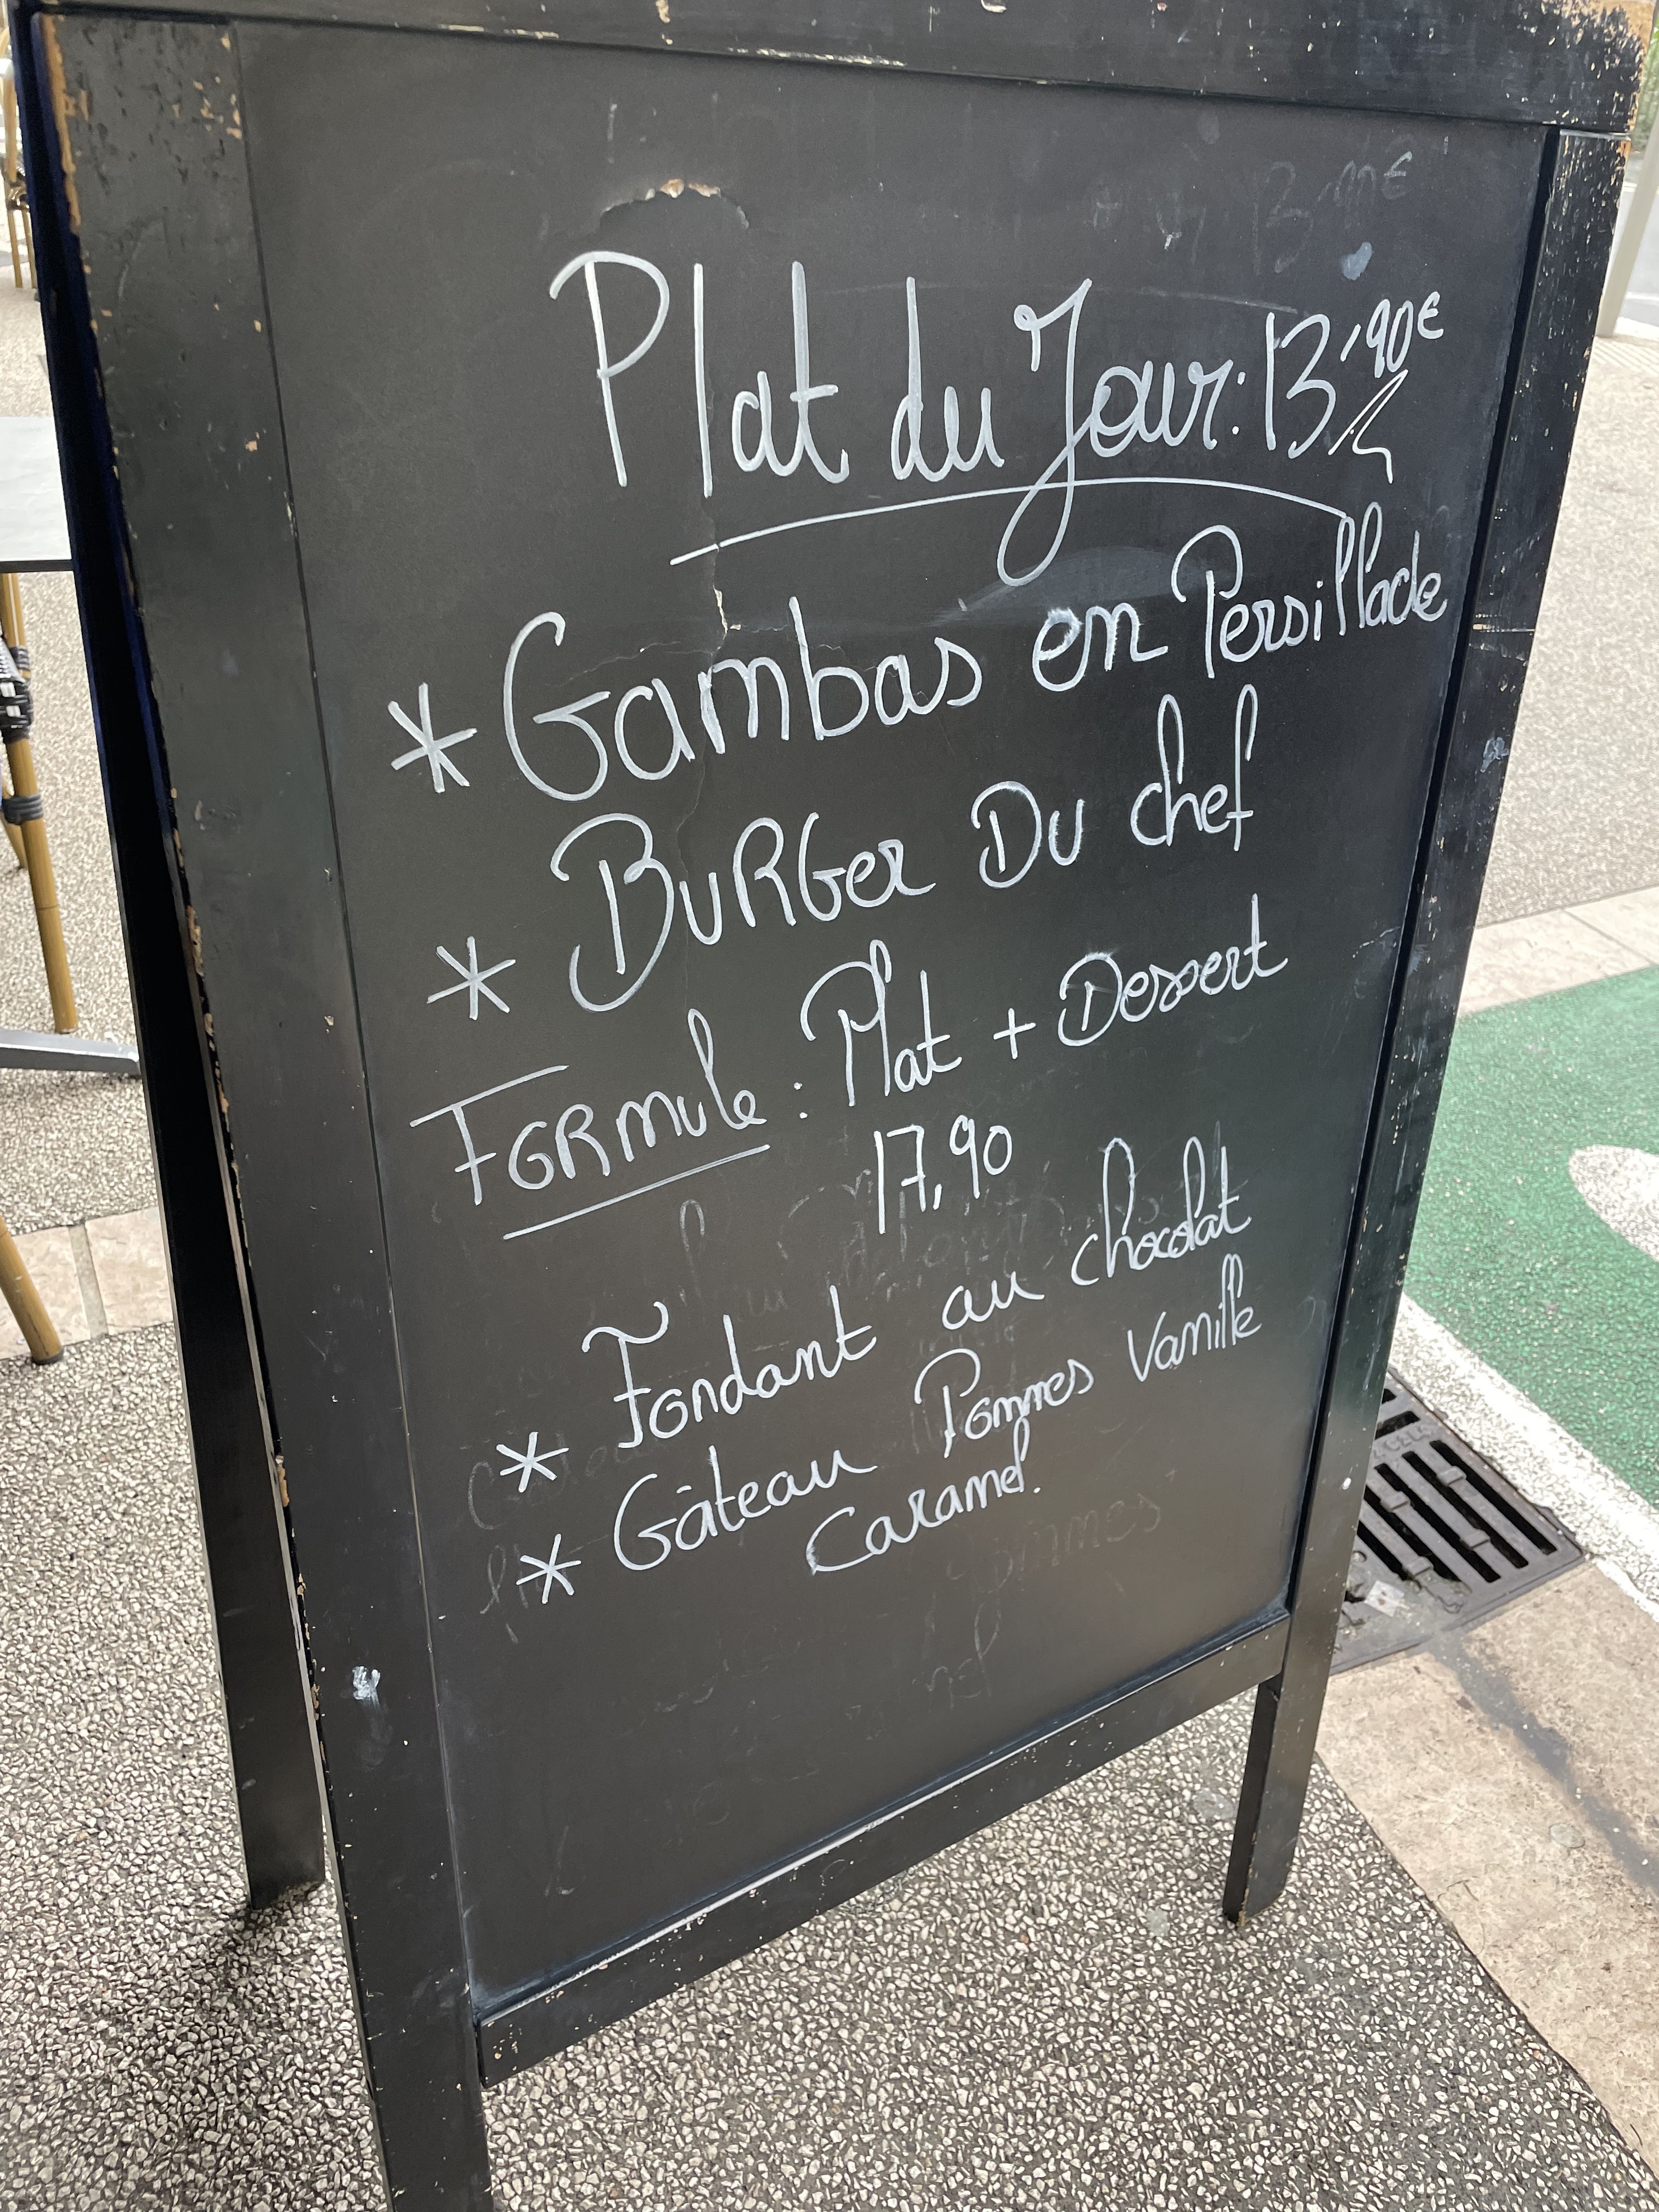 Plat du Jour: 13,90€
* Gambas en Persillade
* BURGer DU chef
FORMule: Plat + Dessert
17,90
* Fondant au chocolat
* Gâteau Pommes Vanille
Caramel.